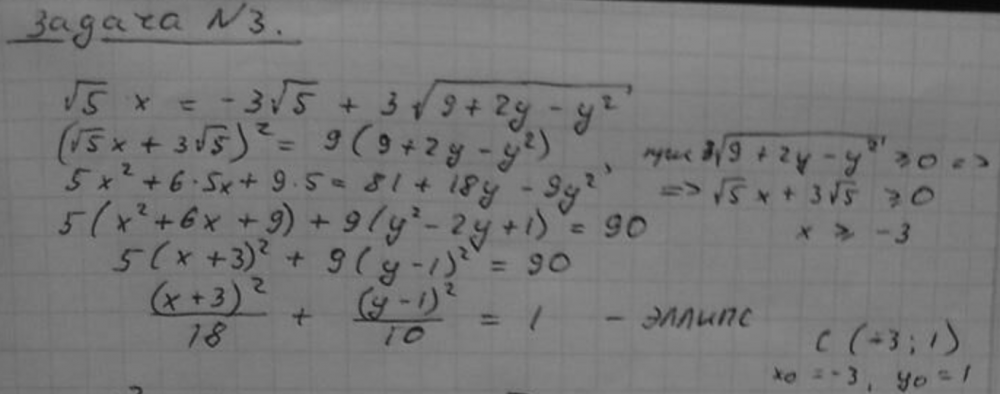 Задача №3.
√5 x = -3√5 + 3√(9 + 2y - y²)
(√5x + 3√5)² = 9(9 + 2y - y²)
при 3√(9 + 2y - y²) ≥ 0 =>
5x² + 6·5x + 9·5 = 81 + 18y - 9y²
=> √5 x + 3√5 ≥ 0
5(x² + 6x + 9) + 9(y² - 2y + 1) = 90
x ≥ -3
5(x + 3)² + 9(y - 1)² = 90
(x + 3)²/18 + (y - 1)²/10 = 1 - эллипс
C (-3; 1)
x0 = -3, y0 = 1